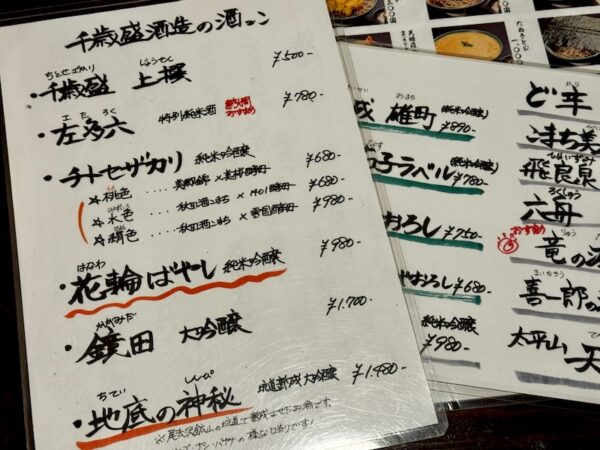 千歳盛酒造の酒
ちとせざかり じょうせん
・千歳盛 上撰 ¥500-
エ た ろく
・左多六 特別純米酒 おすすめ ¥780-
・チトセザカリ 純米吟醸
☆桃色 ‥‥ 美郷錦 × 美桜酵母 ¥680-
☆水色 ‥‥ 秋田酒こまち × 1401酵母 ¥680-
☆絹色 ‥‥ 秋田酒こまち × 雪国酵母 ¥980-
はなわ
・花輪ばやし 純米吟醸 ¥980-
かがみだ
・鏡田 大吟醸 ¥1.700-
ちてい しんぴ
・地底の神秘 坑道熟成大吟醸 ¥1.480-
※尾去沢鉱山の坑道で熟成させたお酒です。
バナナの様な香りです!
おまち
雄町 純米吟醸 ¥890-
子ラベル 純米吟醸 ¥780-
おろし ¥750-
やおろし ¥680-
純米吟醸
¥980-
ど辛
こまち美
ひらいずみ
飛良泉
ろくしゅう
六舟
おすすめ
りゅう
竜の
きいちろう
喜一郎の
太平山 天
たぬきそば